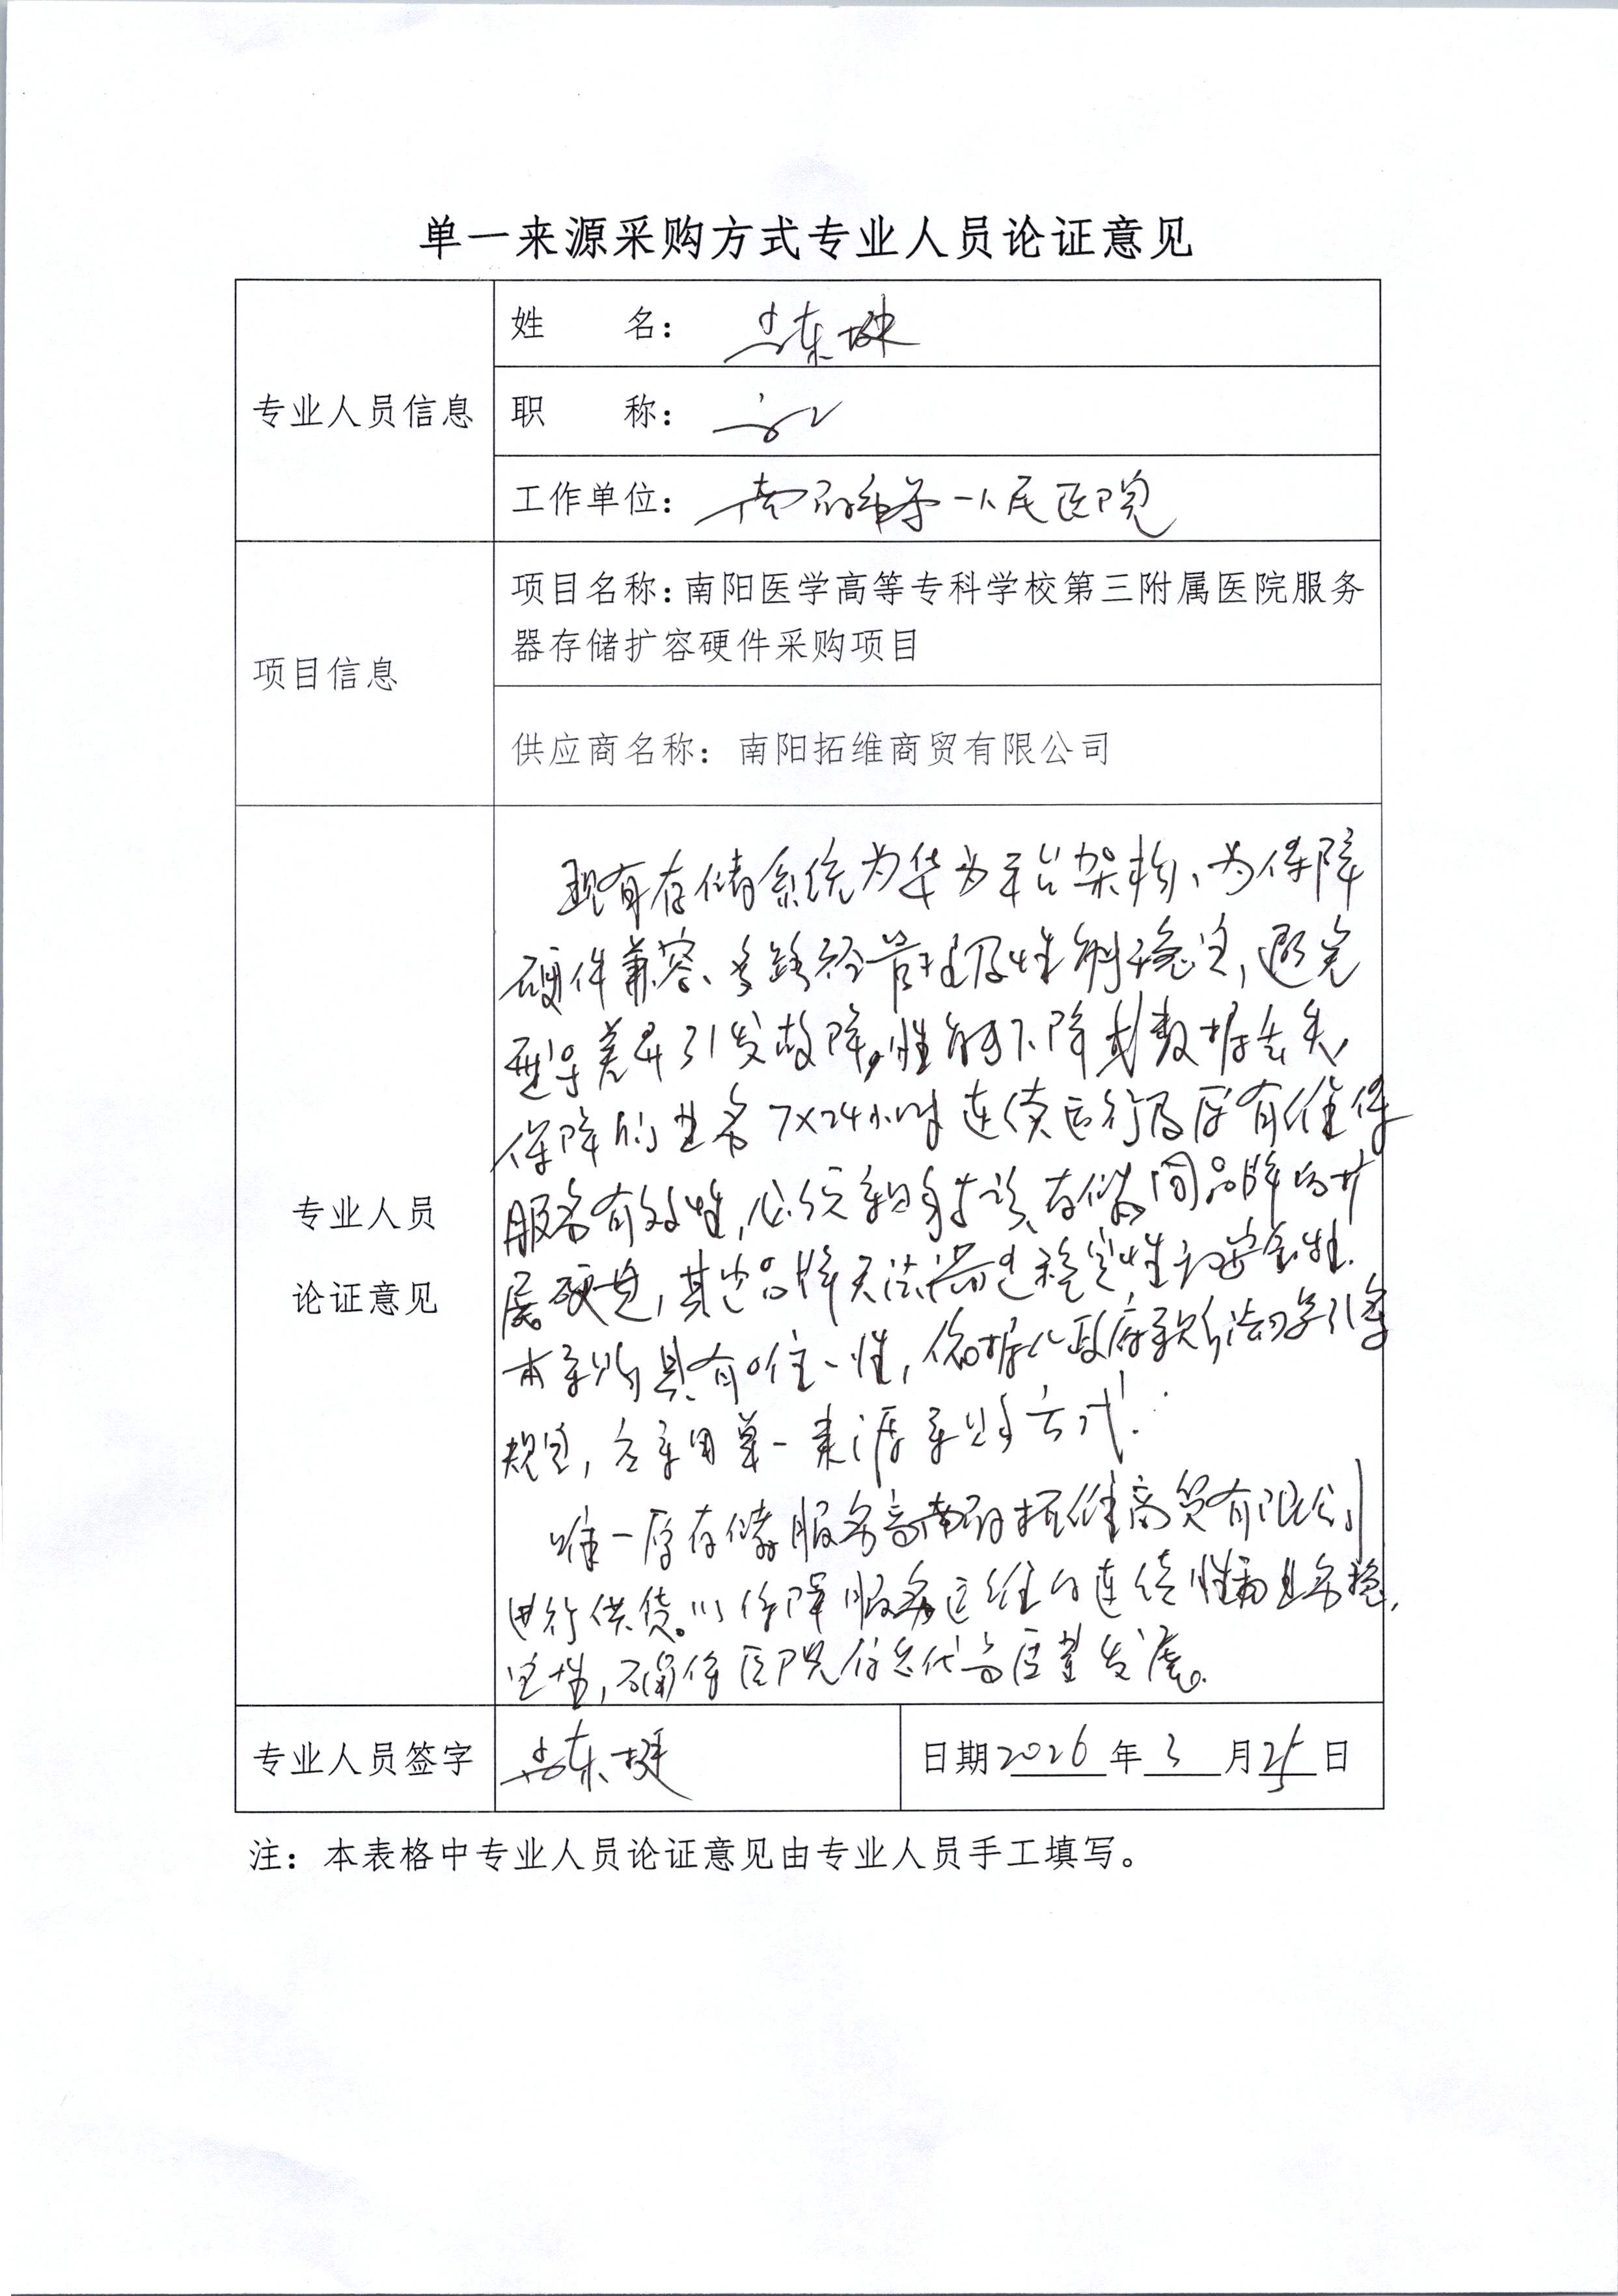 单一来源采购方式专业人员论证意见
专业人员信息
姓 名:
职 称: 高工
工作单位: 南阳市第一人民医院
项目信息
项目名称:南阳医学高等专科学校第三附属医院服务
器存储扩容硬件采购项目
供应商名称: 南阳拓维商贸有限公司
专业人员
论证意见
现有存储系统为华为平台架构、为保障
硬件兼容、多路径管理及性能稳定,避免
型号差异引发故障,性能下降或数据丢失,
保障的业务7×24小时连续运行及原有维保
服务有效性,必须采购与存储同品牌的扩
展硬盘,其它品牌无法满足稳定性和安全性.
本采购具有唯一性,依据《政府采购法》
规定,应采用单一来源采购方式.
唯一原存储服务商南阳拓维商贸有限公司
进行供货。以保障服务运维的连续性和业务稳
定性,确保医院信息化高质量发展。
专业人员签字
日期2026年3月25日
注: 本表格中专业人员论证意见由专业人员手工填写。